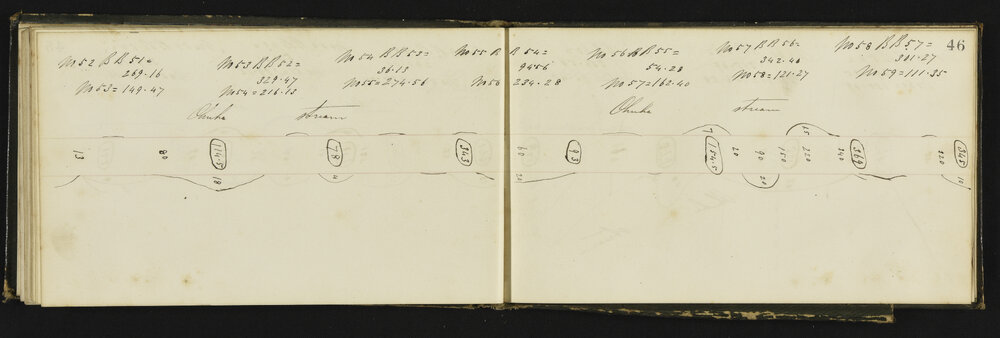 46
No 52 B B 51 =
269.16
No 53 = 149.47
No 53 B B 52 =
329.47
No 54 = 216.13
No 54 B B 53 =
36.13
No 55 = 274.56
No 55 B B 54 =
94 56
No 56 234.28
No 56 B B 55 =
54.28
No 57 = 162.40
No 57 B B 56 =
342.40
No 58 = 121.27
No 58 B B 57 =
301.27
No 59 = 111.35
Ohuha stream
Ohuha stream
13
80
114.5
18
78
4
343
60
20
93
7
154.5
20
90
20
150
15
220
340
369
320
343
10